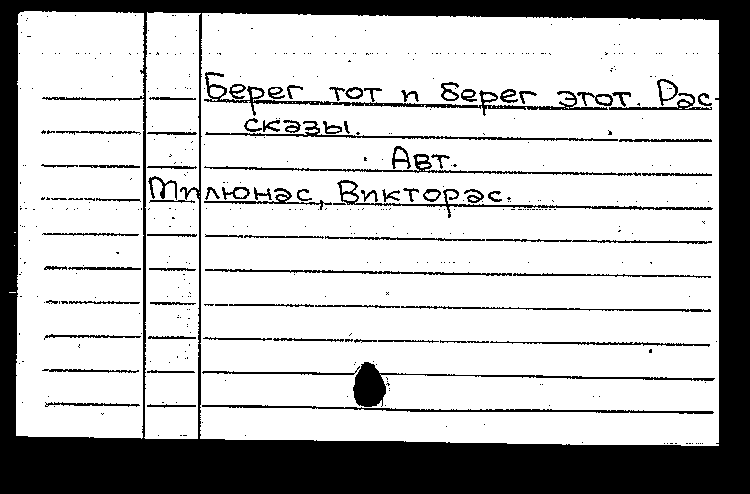 Берег тот и берег этот. Рас-
сказы.
Авт.
Милюнас, Викторас.